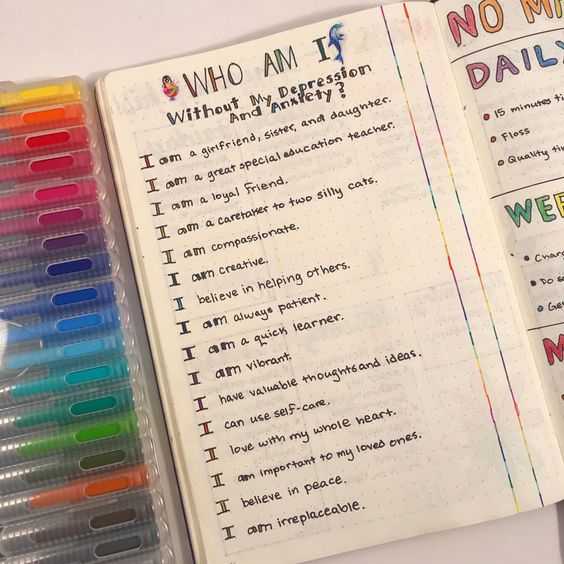 WHO AM I
Without My Depression
And Anxiety?
I am a girlfriend, sister, and daughter.
I am a great special education teacher.
I am a loyal friend.
I am a caretaker to two silly cats.
I am compassionate.
I am creative.
I believe in helping others.
I am always patient.
I am a quick learner.
I am vibrant.
I have valuable thoughts and ideas.
I can use self-care.
I love with my whole heart.
I am important to my loved ones.
I believe in peace.
I am irreplaceable.
NO
DAILY
15 minutes
Floss
Quality
Do